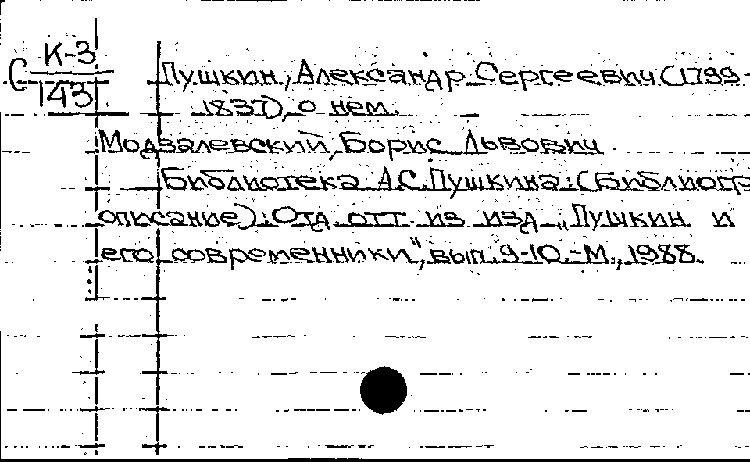 С К-3
143
Пушкин, Александр Сергеевич (1799-
1837), о нем.
Модзалевский, Борис Львович
Библиотека А.С.Пушкина: (Библиогр
описание): Отд. отт. из изд. „Пушкин и
его современники", вып. 9-10.-М., 1988.